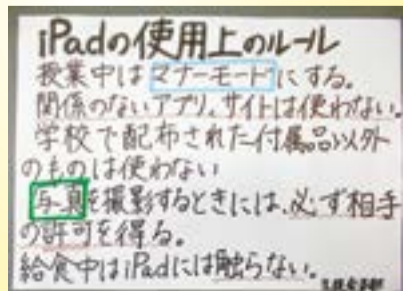 iPadの使用上のルール
授業中はマナーモードにする。
関係のないアプリ、サイトは使わない。
学校で配布された付属品以外
のものは使わない
写真を撮影するときには、必ず相手
の許可を得る。
給食中はiPadには触らない。